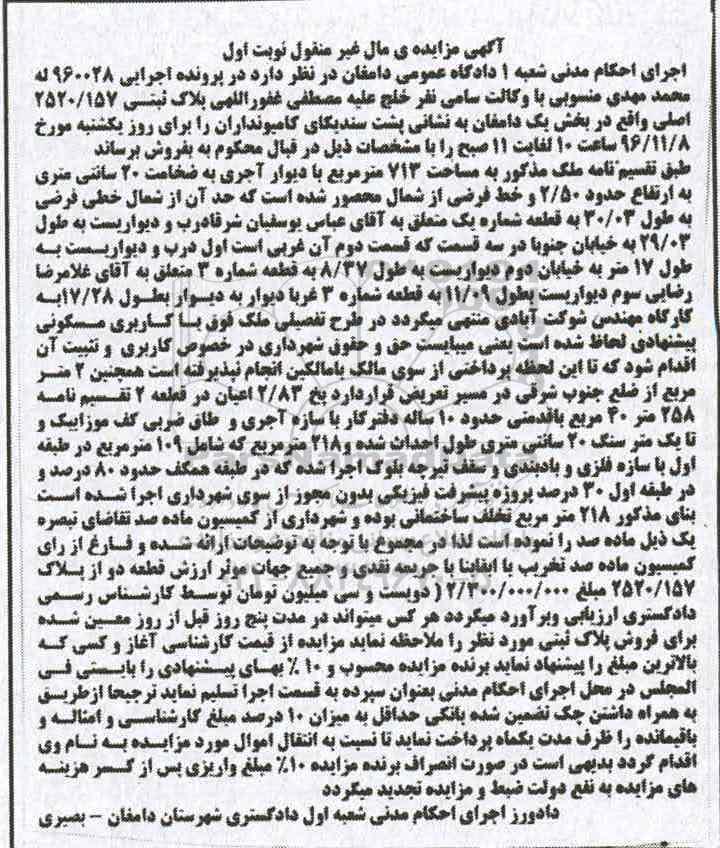 آگهی مزایده ی مال غیر منقول نوبت اول
اجرای احکام مدنی شعبه ۱ دادگاه عمومی دامغان در نظر دارد در پرونده اجرایی ۹۶۰۰۲۸ له
محمد مهدی منسوبی با وکالت سامی نفر خلج علیه مصطفی غفوراللهی پلاک ثبتی ۲۵۲۰/۱۵۷
اصلی واقع در بخش یک دامغان به نشانی پشت سندیکای کامیونداران را برای روز یکشنبه مورخ
۹۶/۱۱/۸ ساعت ۱۰ لغایت ۱۱ صبح را با مشخصات ذیل در قبال محکوم به بفروش برساند
طبق تقسیم نامه ملک مذکور به مساحت ۷۱۳ مترمربع با دیوار آجری به ضخامت ۲۰ سانتی متری
به ارتفاع حدود ۲/۵۰ و خط فرضی از شمال محصور شده است که حد آن از شمال خطی فرضی
به طول ۳۰/۰۳ به قطعه شماره یک متعلق به آقای عباس یوسفیان شرقادرب و دیواریست به طول
۲۹/۰۳ به خیابان جنوبا در سه قسمت که قسمت دوم آن غربی است اول درب و دیواریست به
طول ۱۷ متر به خیابان دوم دیواریست به طول ۸/۳۷ به قطعه شماره ۳ متعلق به آقای غلامرضا
رضایی سوم دیواریست بطول ۱۱/۰۹ به قطعه شماره ۳ غربا دیوار به دیوار بطول ۱۷/۲۸به
کارگاه مهندس شوکت آبادی منتهی میگردد در طرح تفصیلی ملک فوق با کاربری مسکونی
پیشنهادی لحاظ شده است یعنی میبایست حق و حقوق شهرداری در خصوص کاربری و تثبیت آن
اقدام شود که تا این لحظه پرداختی از سوی مالک یامالکین انجام نپذیرفته است همچنین ۲ متر
مربع از ضلع جنوب شرقی در مسیر تعریض قراردارد پخ ۲/۸۳ اعیان در قطعه ۲ تقسیم نامه
۲۵۸ متر ۴۰ مربع باقدمتی حدود ۱۰ ساله دفترکار با سازه آجری و طاق ضربی کف موزاییک و
تا یک متر سنگ ۲۰ سانتی متری طول احداث شده و۲۱۸ مترمربع که شامل ۱۰۹ مترمربع در طبقه
اول با سازه فلزی و بادبندی و سقف تیرچه بلوک اجرا شده که در طبقه همکف حدود ۸۰ درصد و
در طبقه اول ۳۰ درصد پروژه پیشرفت فیزیکی بدون مجوز از سوی شهرداری اجرا شده است
بنای مذکور ۲۱۸ متر مربع تخلف ساختمانی بوده و شهرداری از کمیسیون ماده صد تقاضای تبصره
یک ذیل ماده صد را نموده است لذا در مجموع با توجه به توضیحات ارائه شده و فارغ از رای
کمیسیون ماده صد تخریب یا ابقاء با جریمه نقدی و جمیع جهات موثر ارزش قطعه دو از پلاک
۲۵۲۰/۱۵۷ مبلغ ۲/۳۰۰/۰۰۰/۰۰۰ ( دویست و سی میلیون تومان توسط کارشناس رسمی
دادگستری ارزیابی وبرآورد میگردد هر کس میتواند در مدت پنج روز قبل از روز معین شده
برای فروش پلاک ثبتی مورد نظر را ملاحظه نماید مزایده از قیمت کارشناسی آغاز و کسی که
بالاترین مبلغ را پیشنهاد نماید برنده مزایده محسوب و ۱۰ ٪ بهای پیشنهادی را بایستی فی
المجلس در محل اجرای احکام مدنی بعنوان سپرده به قسمت اجرا تسلیم نماید ترجیحا ازطریق
به همراه داشتن چک تضمین شده بانکی حداقل به میزان ۱۰ درصد مبلغ کارشناسی و امثاله و
باقیمانده را ظرف مدت یکماه پرداخت نماید تا نسبت به انتقال اموال مورد مزایده به نام وی
اقدام گردد بدیهی است در صورت انصراف برنده مزایده ۱۰٪ مبلغ واریزی پس از کسر هزینه
های مزایده به نفع دولت ضبط و مزایده تجدید میگردد
دادورز اجرای احکام مدنی شعبه اول دادگستری شهرستان دامغان – بصیری